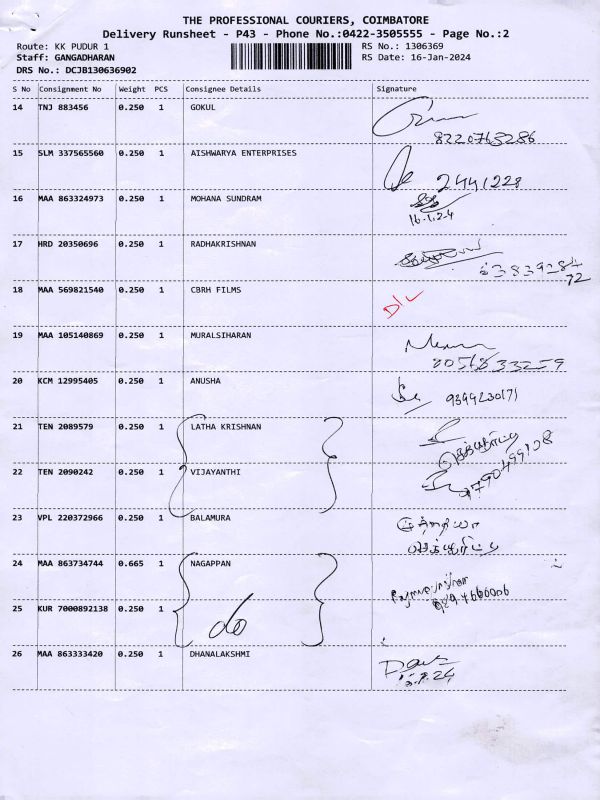 THE PROFESSIONAL COURIERS, COIMBATORE
Delivery Runsheet - P43 - Phone No.:0422-3505555 - Page No.:2
Route: KK PUDUR 1 RS No.: 1306369
Staff: GANGADHARAN RS Date: 16-Jan-2024
DRS No.: DCJB130636902
S No Consignment No Weight PCS Consignee Details Signature
14 TNJ 883456 0.250 1 GOKUL
8220763286
15 SLM 337565560 0.250 1 AISHWARYA ENTERPRISES
2441228
16 MAA 863324973 0.250 1 MOHANA SUNDRAM
16.1.24
17 HRD 20350696 0.250 1 RADHAKRISHNAN
18 MAA 569821540 0.250 1 CBRH FILMS
D/L
19 MAA 105140869 0.250 1 MURALSIHARAN
20 KCM 12995405 0.250 1 ANUSHA
21 TEN 2089579 0.250 1 LATHA KRISHNAN
22 TEN 2090242 0.250 1 VIJAYANTHI
23 VPL 220372966 0.250 1 BALAMURA
24 MAA 863734744 0.665 1 NAGAPPAN
25 KUR 7000892138 0.250 1 do
26 MAA 863333420 0.250 1 DHANALAKSHMI